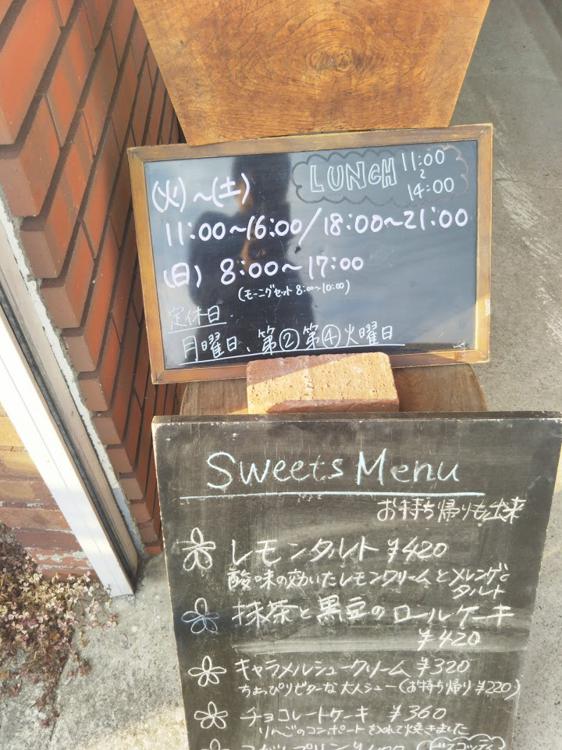 LUNCH 11:00
~
14:00
(火)~(土)
11:00~16:00/18:00~21:00
(日) 8:00~17:00
(モーニングセット 8:00~10:00)
定休日
月曜日、第②第④火曜日
Sweets Menu
お持ち帰りも出来
レモンタルト ¥420
酸味の効いたレモンクリームとメレンゲと
タルト
抹茶と黒豆のロールケーキ
¥420
キャラメルシュークリーム ¥320
ちょっぴりビターな大人シュー(お持ち帰り¥220)
チョコレートケーキ ¥360
りんごのコンポートを入れて焼きました